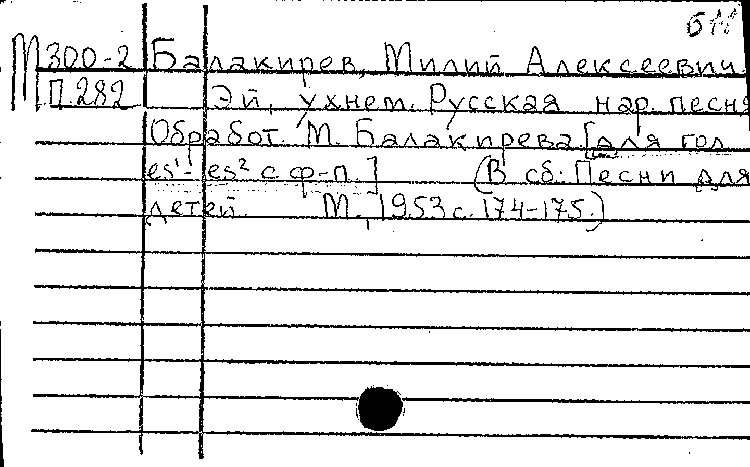 М300-2 Балакирев, Милий Алексеевич.
П.282 Эй, ухнем. Русская нар. песня
Обработ. М. Балакирева [для гол.
es¹-es² с ф-п.] (В сб: Песни для
детей. М., 1953 с. 174-175.)